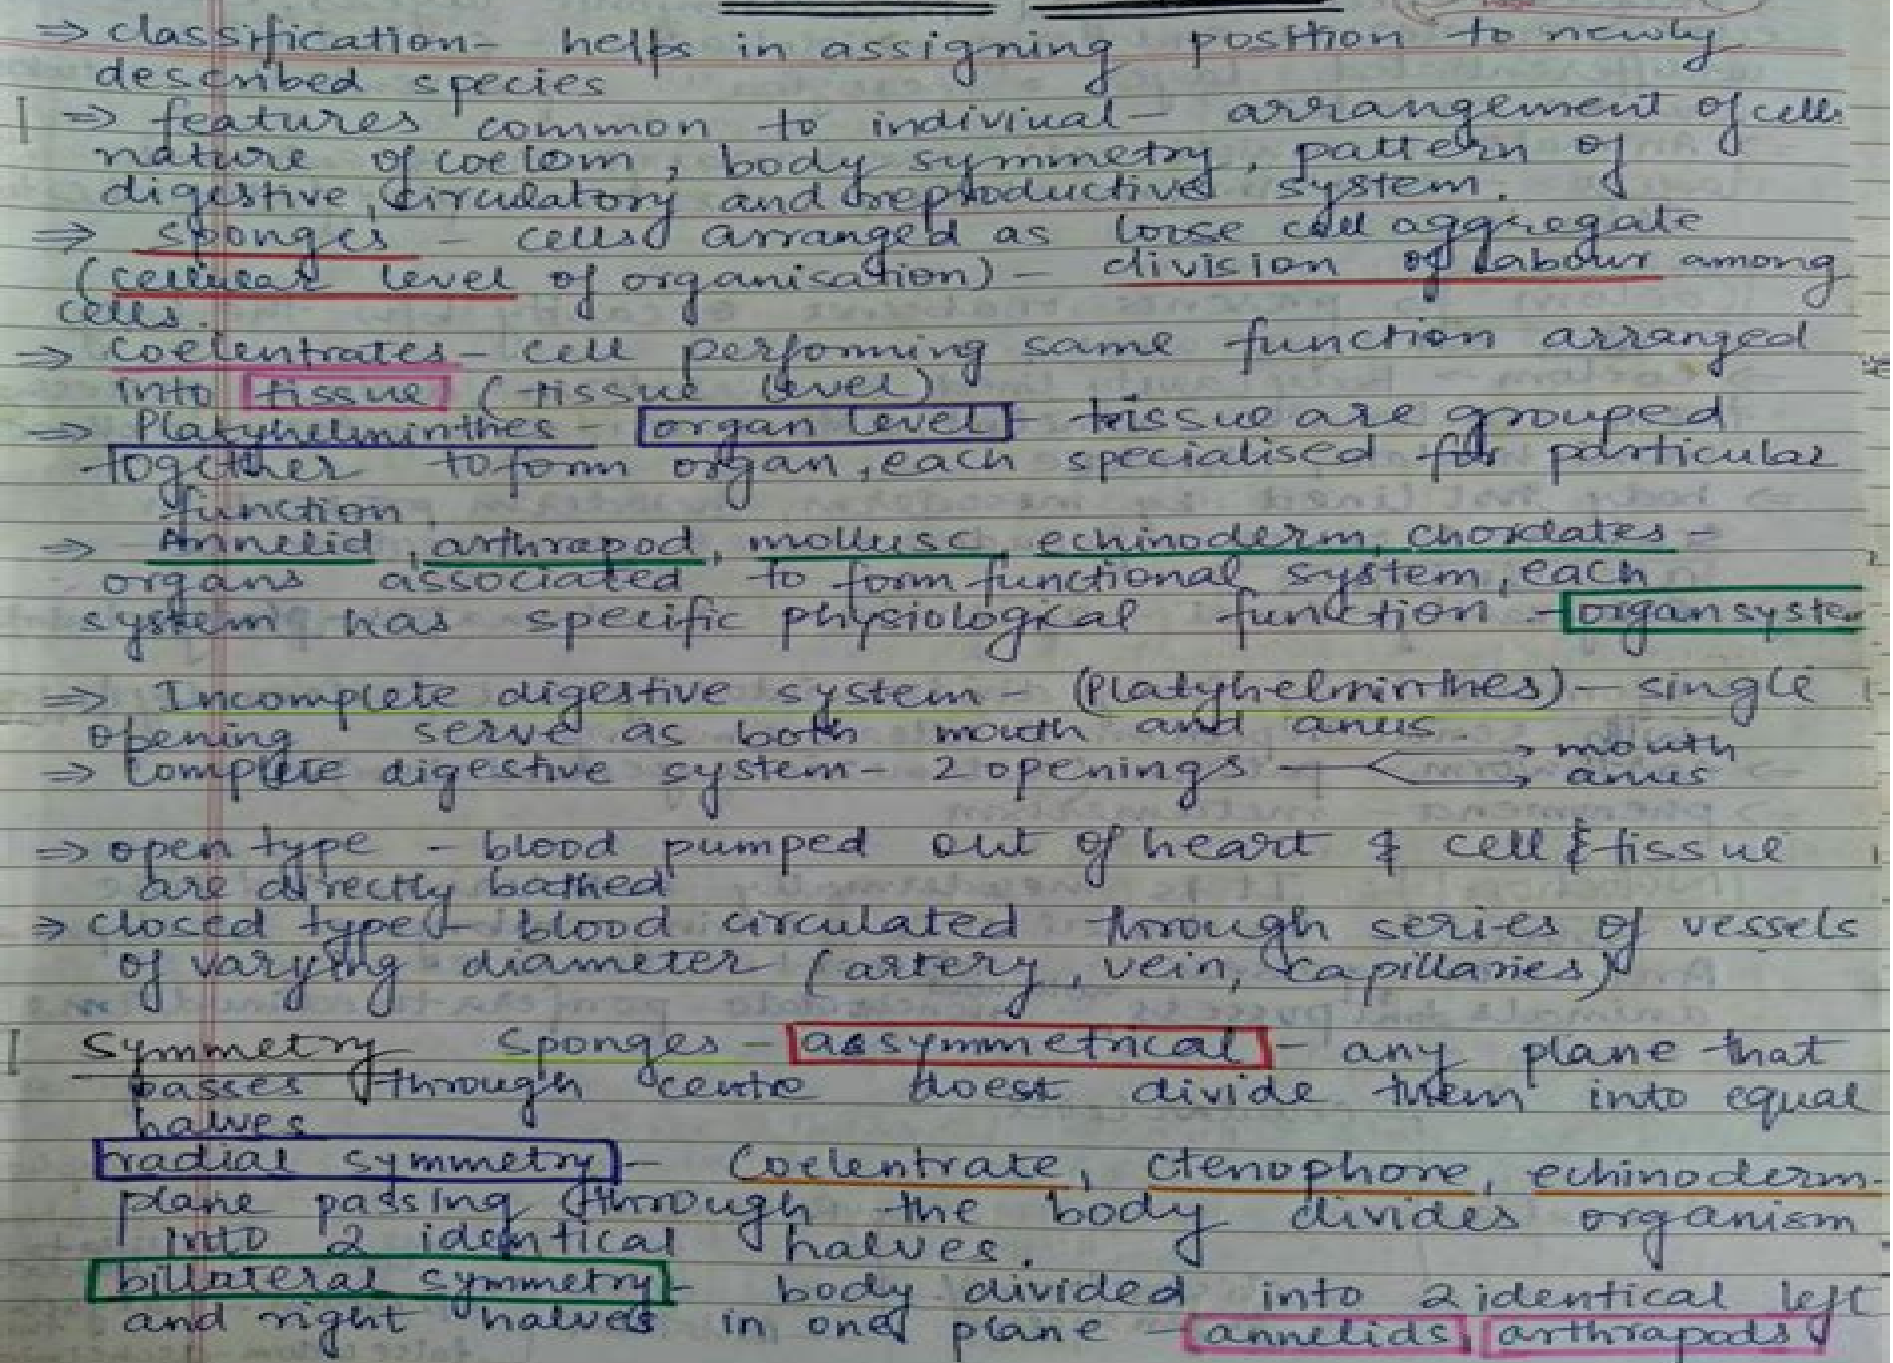 ⇒ classification- helps in assigning position to newly
described species
⇒ features common to indiviual- arrangement of cells
nature of coelom, body symmetry, pattern of
digestive, circulatory and reproductive system.
⇒ sponges - cells arranged as loose cell aggregate
(cellular level of organisation) - division of labour among
cells.
⇒ Coelentrates- cell performing same function arranged
into tissue (tissue level)
⇒ Platyhelminthes - organ level - tissue are grouped
together to form organ, each specialised for particular
function.
⇒ Annelid, arthrapod, mollusc, echinoderm, chordates -
organs associated to form functional system, each
system has specific physiological function - organ system
⇒ Incomplete digestive system - (Platyhelminthes) - single
opening serve as both mouth and anus.
⇒ Complete digestive system- 2 openings → mouth
→ anus
⇒ open type - blood pumped out of heart & cell & tissue
are directly bathed
⇒ closed type - blood circulated through series of vessels
of varying diameter (artery, vein, capillaries)
Symmetry Sponges - assymmetrical - any plane that
passes through centre doest divide them into equal
halves
radial symmetry - Coelentrate, ctenophore, echinoderm-
plane passing through the body divides organism
into 2 identical halves.
billateral symmetry- body divided into 2 identical left
and right halves in one plane - annelids, arthrapods